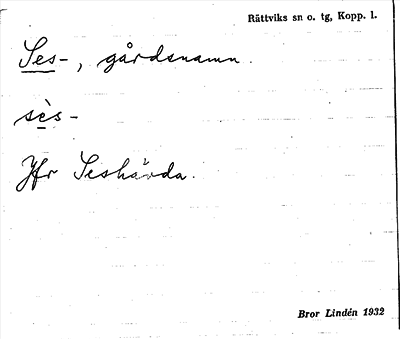 Rättviks sn o. tg, Kopp. l.
Ses-, gårdsnamn.
sès-
Jfr Seshärda.
Bror Lindén 1932